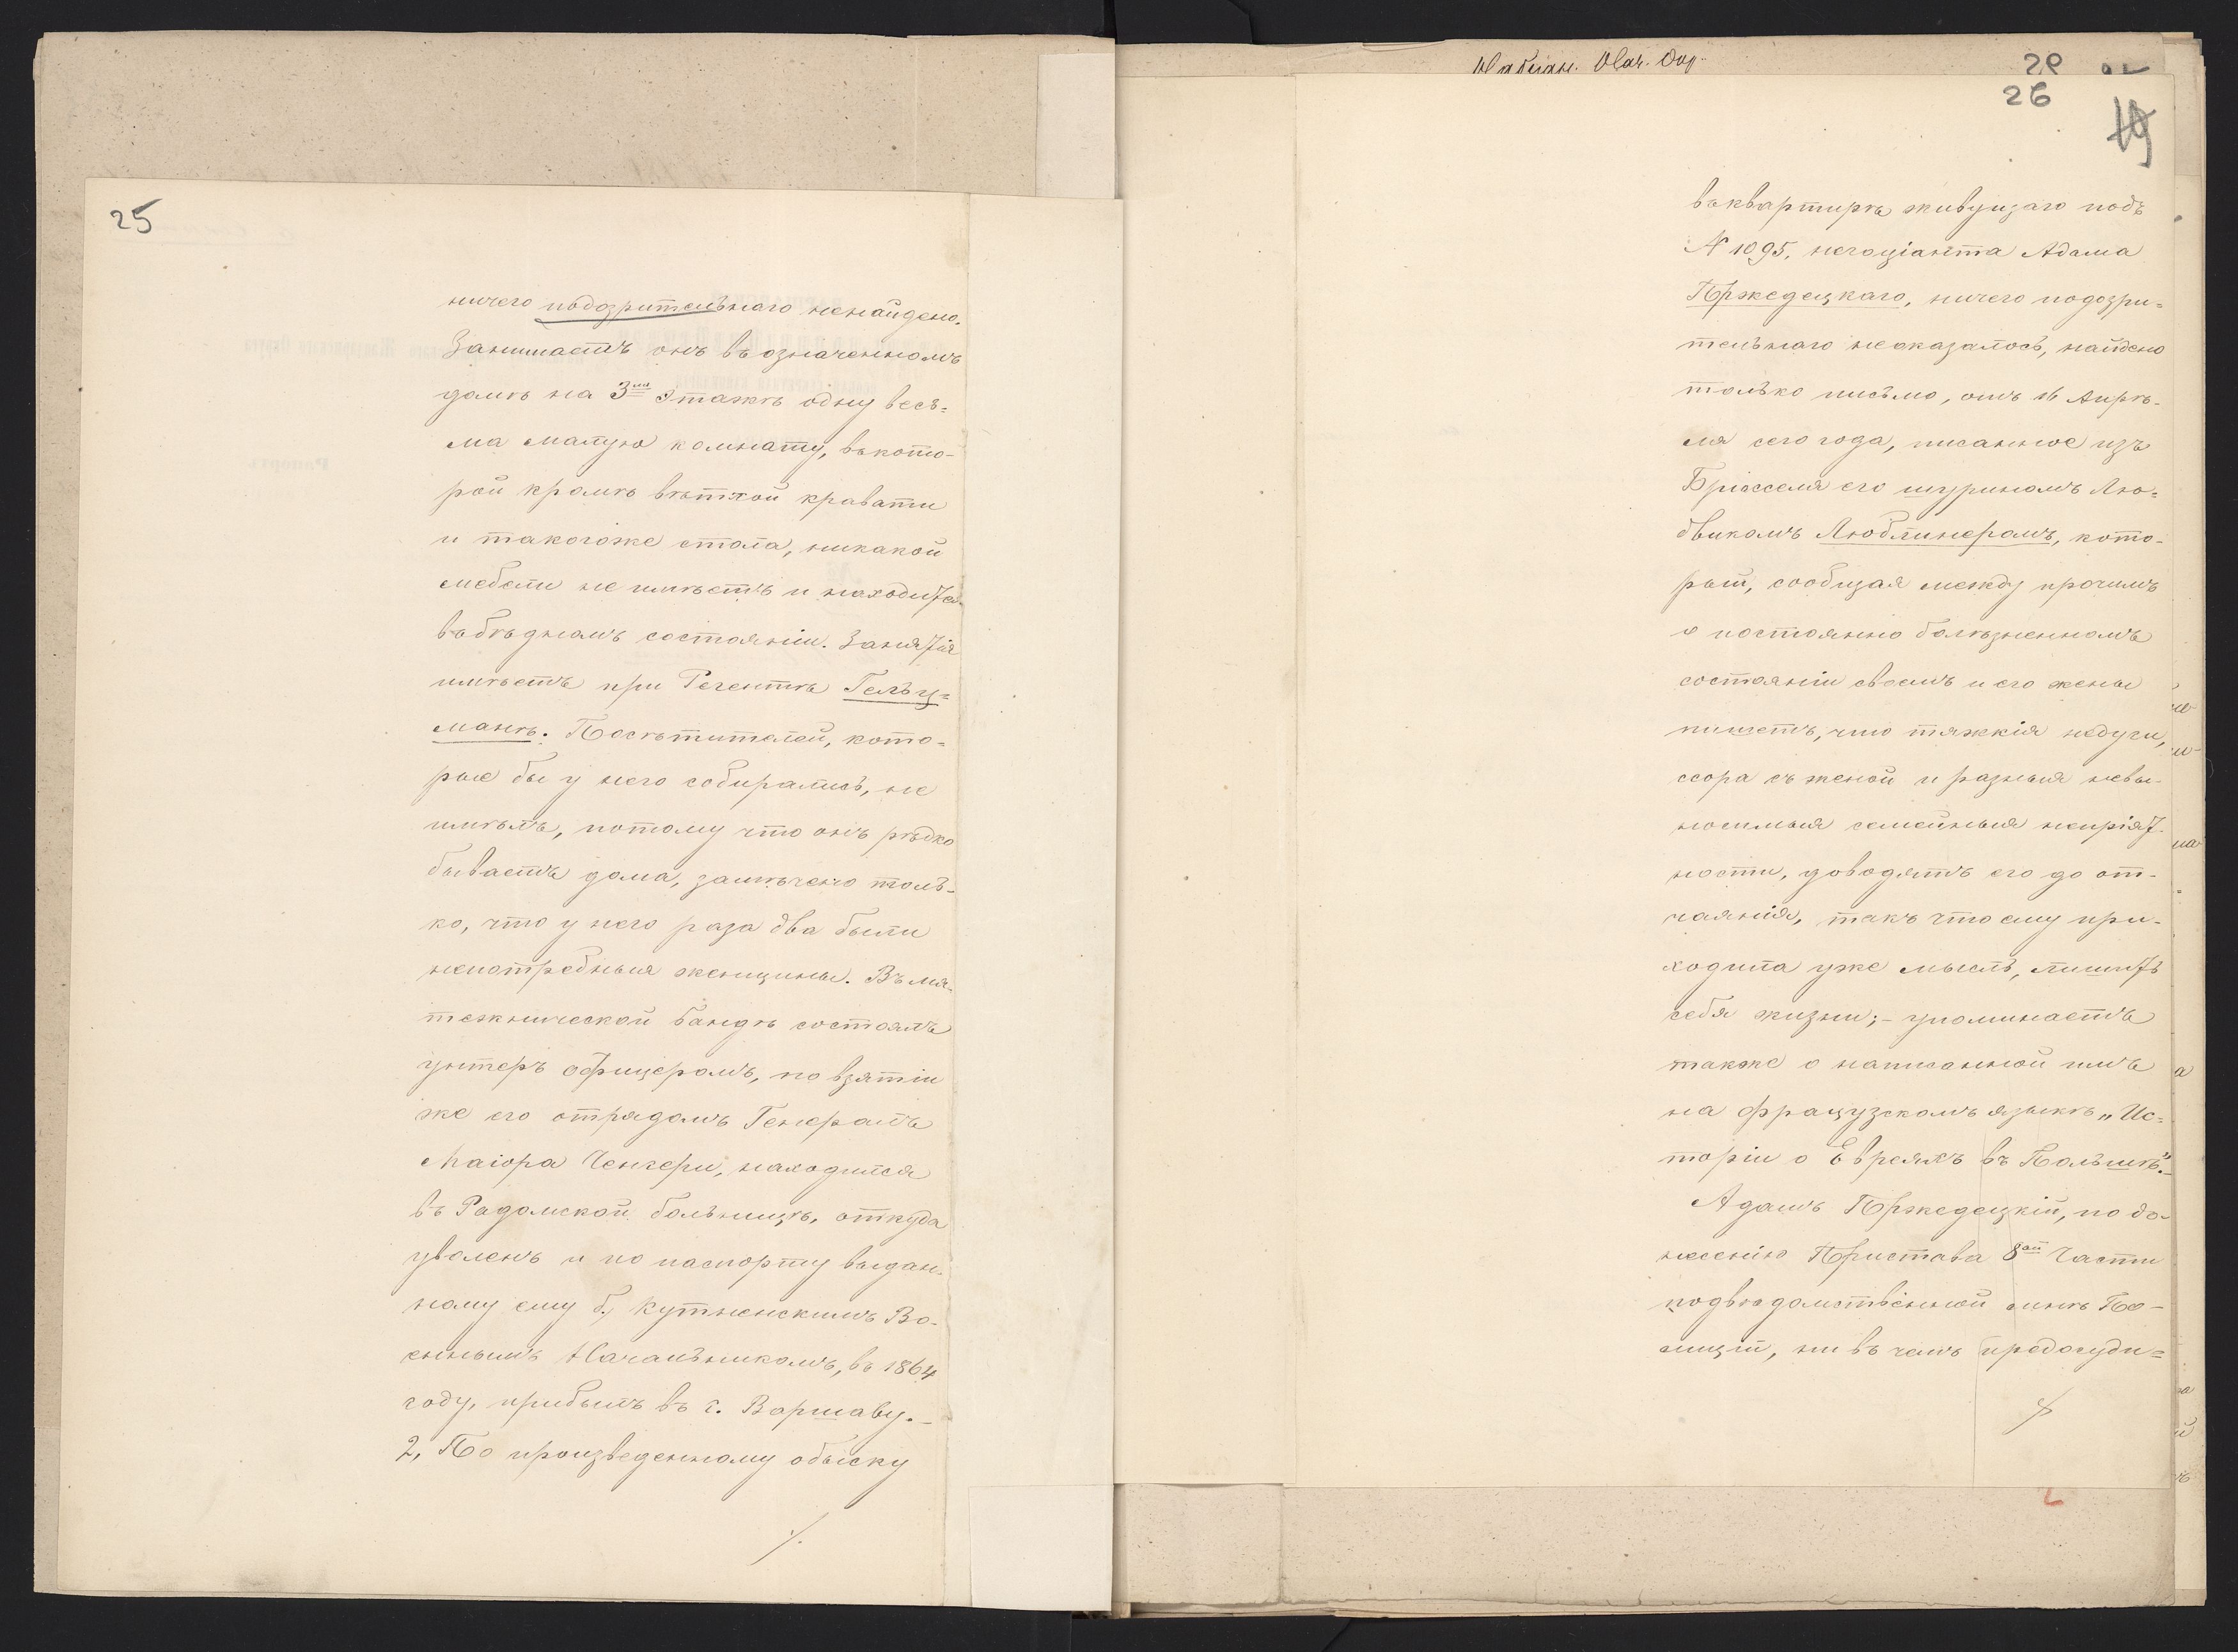 25
ничего подозрительнаго ненайдено.
Занимаетъ онъ въ означенномъ
домѣ на 3мъ этажѣ одну весь=
ма малую комнату, въкото-
рой кромѣ вѣтхой кравати
и такогоже стола, никакой
мебели не имѣетъ и находится
въбѣдномъ состояніи. Занятія
имѣетъ при Регентѣ Гельц=
манѣ. Посѣтителей, кото-
рые бы у него собирались, не
имѣлъ, потому что онъ рѣдко
бываетъ дома, замѣчено толь-
ко, что у него раза два были
непотребныя женщины. Въ мя-
тежнической бандѣ состоялъ
унтеръ офицеромъ, по взятіи
же его отрядомъ Генералъ
Маіора Ченгери, находился
въ Радомской больницѣ, откуда
уволенъ и по паспорту выдан-
ному ему б. Кутненскимъ Во-
еннымъ Начальникомъ, въ 1864
году, прибылъ въ г. Варшаву.-
2, По произведенному обыску
26
19
въквартирѣ живущаго подъ
№ 1095, негоціанта Адама
Пржедецкаго, ничего подозри=
тельнаго неоказалось, найдено
только письмо, отъ 16 Апрѣ-
ля сего года, писанное изъ
Брюсселя его шуриномъ Лю=
двикомъ Люблинеромъ, кото-
рый, сообщая между прочимъ
о постоянно болѣзненномъ
состояніи своемъ и его жены
пишетъ, что тяжкія недуги,
ссора съ женой и разныя невы-
носимыя семейныя непріят-
ности, доводятъ его до от-
чаянія, такъ что ему при-
ходила уже мысль, лишить
себя жизни;- упоминаетъ
также о написанной имъ
на фрацузскомъ языкѣ „Ис-
торіи о Евреяхъ въ Польшѣ."-
Адамъ Пржедецкій, по до-
несенію Пристава 8ой Части
подвѣдомственной мнѣ По-
лиціи, ни въ чемъ предосуди=